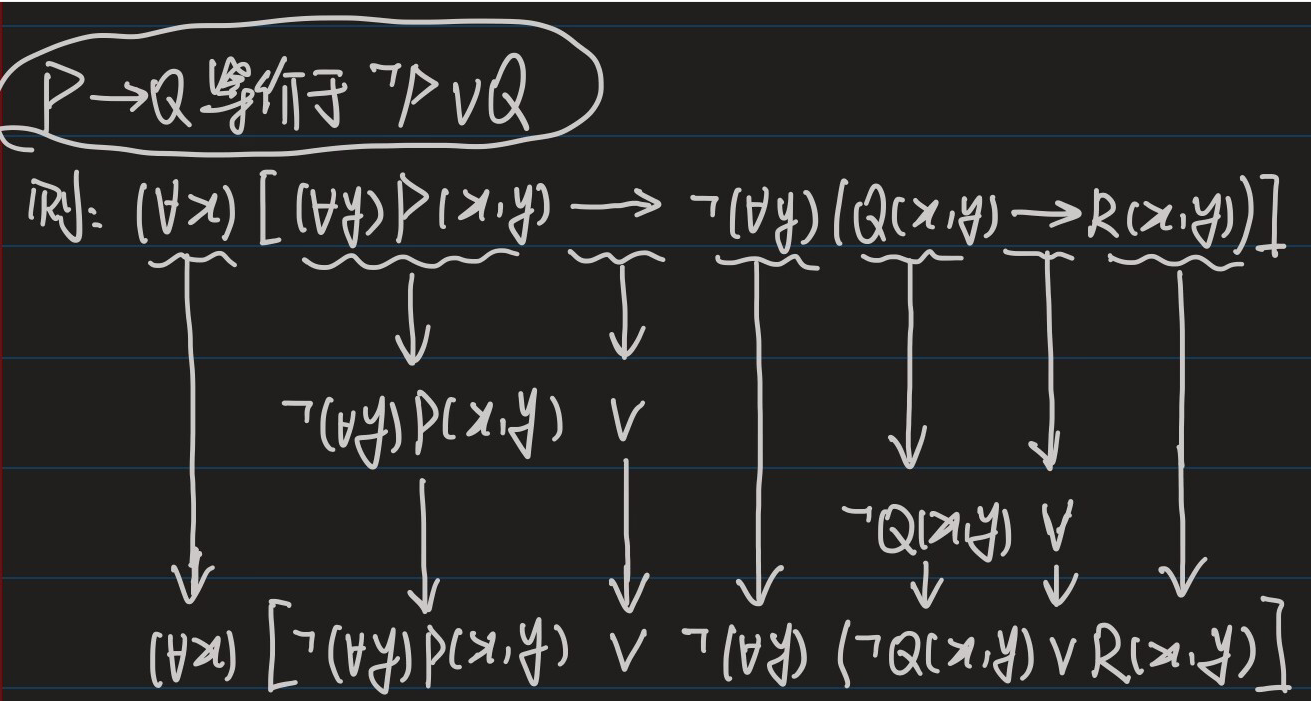 P→Q等价于 ¬P∨Q
则: (∀x)[(∀y)P(x,y) → ¬(∀y)(Q(x,y)→R(x,y))]
¬(∀y)P(x,y) ∨
¬Q(x,y) ∨
(∀x)[¬(∀y)P(x,y) ∨ ¬(∀y)(¬Q(x,y)∨R(x,y)]